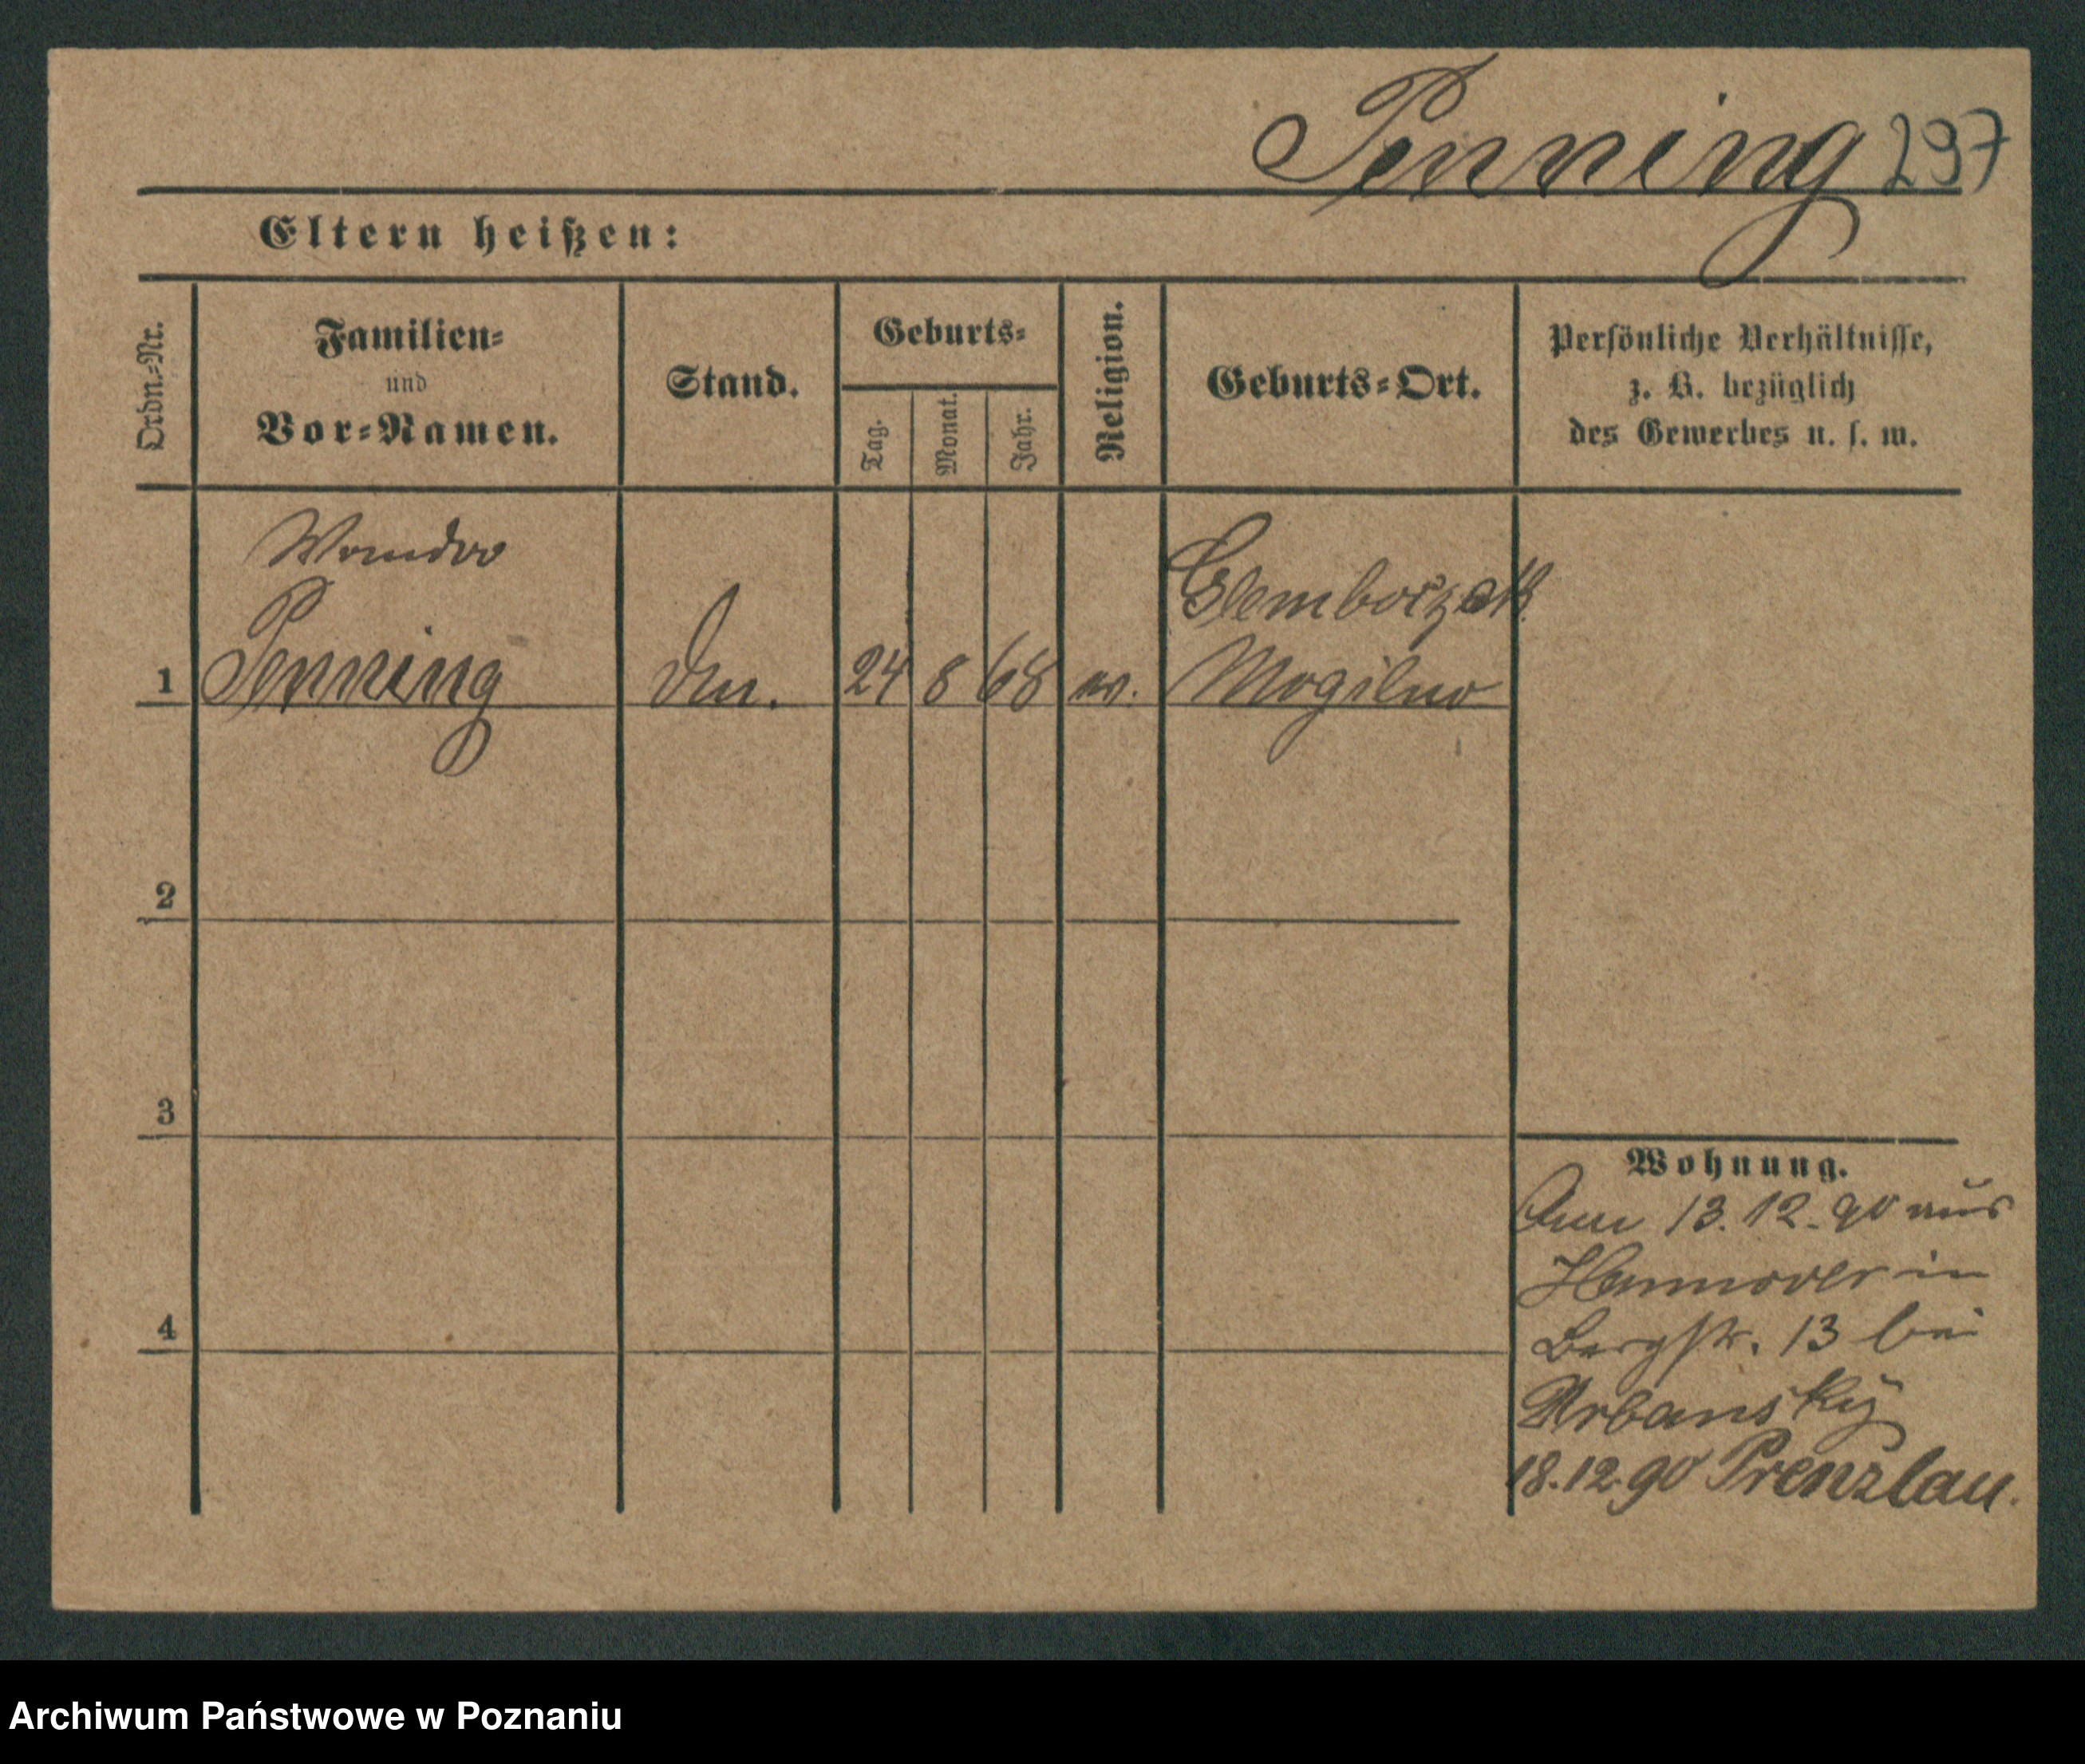 Penning 297
Eltern heißen:
Ordn.-Nr.
Familien-
und
Vor-Namen.
Stand.
Geburts-
Tag.
Monat.
Jahr.
Religion.
Geburts-Ort.
Persönliche Verhältnisse,
z. B. bezüglich
des Gewerbes u. s. w.
Wanda
Penning
1
24 8 68
Mogilno
2
3
4
Wohnung.
13.12.90 aus
Hannover in
Bergstr. 13 bei
Urbansky
18.12.90 Prenzlau.
Archiwum Państwowe w Poznaniu